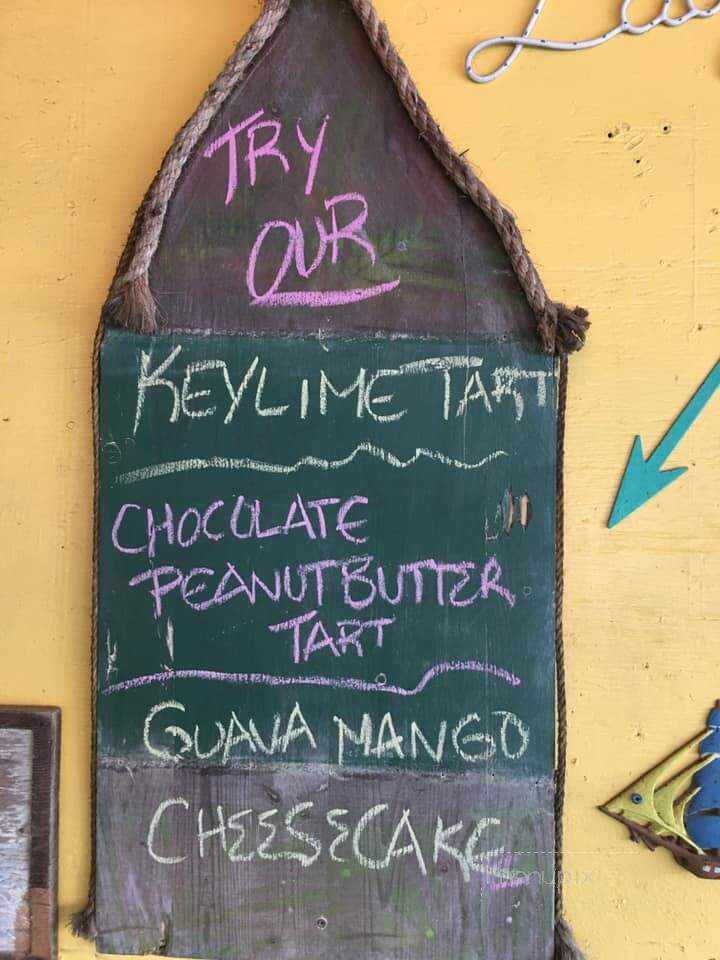 TRY
OUR
KEYLIME TART
CHOCOLATE
PEANUTBUTTER
TART
GUAVA MANGO
CHEESECAKE